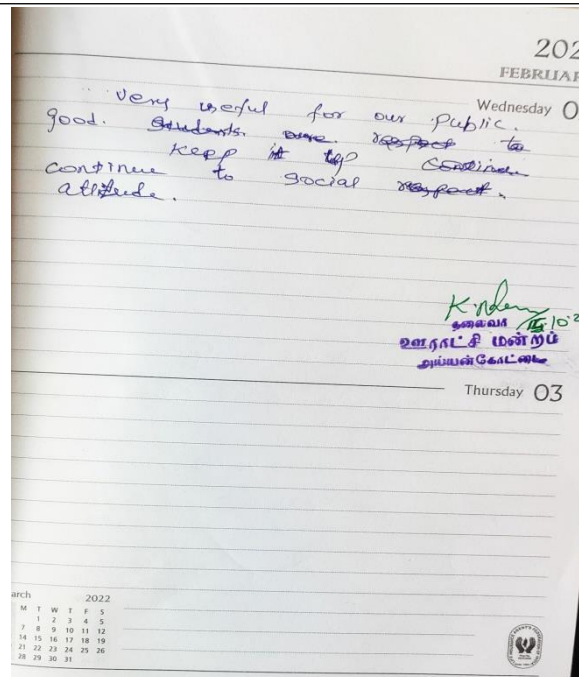 202
FEBRUAR
Wednesday 0
Very useful for our public.
good. Students are respect to
Keep it up continue
continue to social respect.
attitude.
தலைவர்
ஊராட்சி மன்றம்
அய்யன்கோட்டை
Thursday 03
arch 2022
M T W T F S
1 2 3 4 5
7 8 9 10 11 12
14 15 16 17 18 19
21 22 23 24 25 26
28 29 30 31